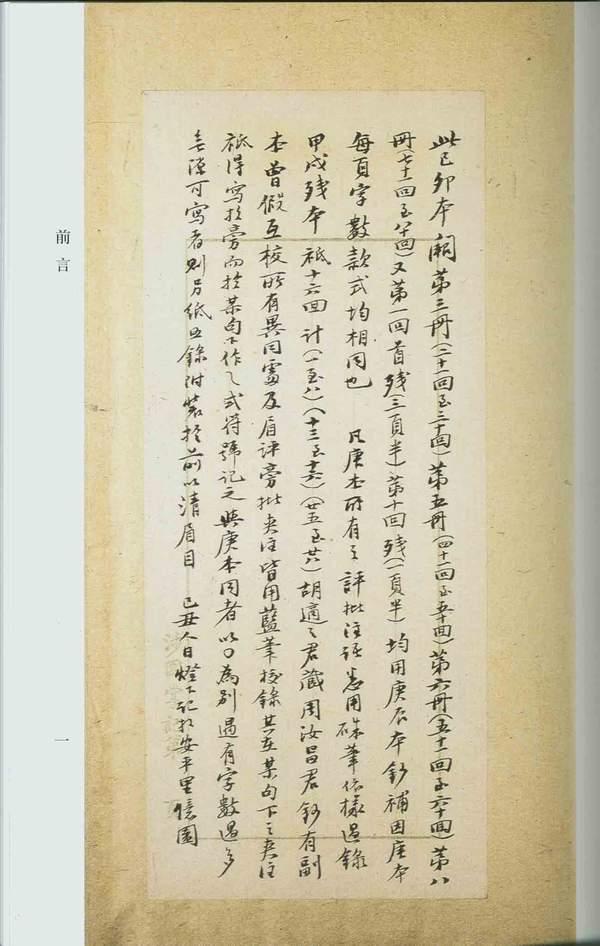 此己卯本闕第三冊(二十一回至三十回)第五冊(四十一回至五十回)第六冊(五十一回至六十回)第八
冊(七十一回至八十回)又第一回首殘(三頁半)第十回殘(一頁半)均用庚辰本鈔補因庚本
每頁字數款式均相同也 凡庚本所有之評批注語悉用硃筆依樣過錄
甲戌殘本祇十六回計(一至八)(十三至十六)(廿五至廿八)胡適之君藏周汝昌君鈔有副
本曾假互校所有異同處及眉評旁批夾注皆用藍筆校錄其在某句下之夾注
祇得寫於旁而於某句下作乀式符號記之與庚本同者以〇為別遇有字數過多
無隙可寫者則另紙照錄附裝於前以清眉目 己丑人日燈下記於安平里憶園
前言
一